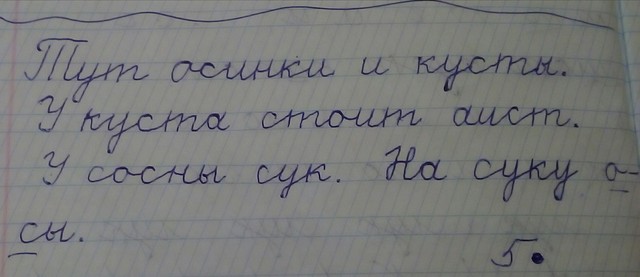 Тут осинки и кусты.
У куста стоит аист.
У сосны сук. На суку о-
сы.
5.